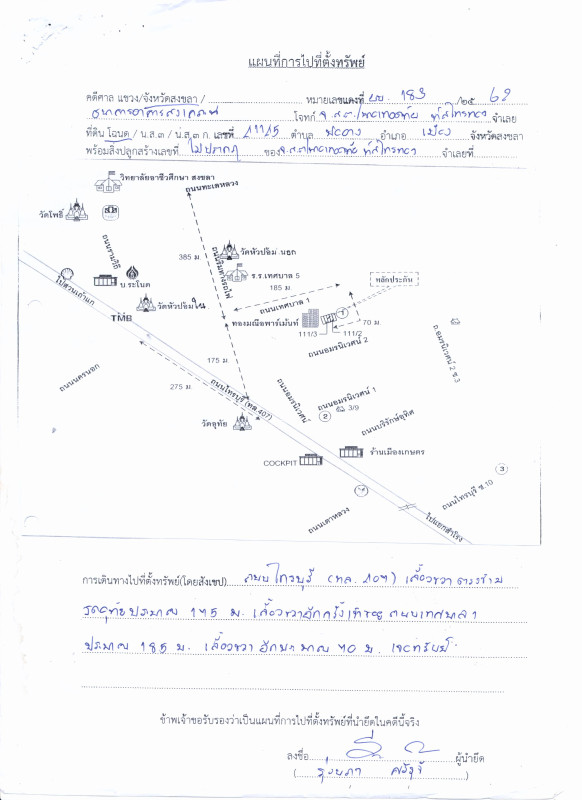 แผนที่การไปที่ตั้งทรัพย์
คดีศาล แขวง/จังหวัดสงขลา / หมายเลขแดงที่ ผบ. 183 /๒๕ 62
ธนาคารอาคารสงเคราะห์ โจทก์ จำเลย
ที่ดิน โฉนด / น.ส.๓ / น.ส.๓ ก. เลขที่ ตำบล พะวง อำเภอ เมือง จังหวัดสงขลา
พร้อมสิ่งปลูกสร้างเลขที่ ไม่ปรากฏ ของ จำเลยที่
วิทยาลัยอาชีวศึกษา สงขลา
ถนนทะเลหลวง
วัดโพธิ์
ถนนรามวิถี
385 ม.
ถนนริมทางรถไฟ
วัดหัวป้อม นอก
ร.ร.เทศบาล 5
185 ม.
ถนนเทศบาล 1
หลักประกัน
ไปสวนเก้าแก
บ.ระโนต
วัดหัวป้อม ใน
TMB
ทองมณีอพาร์เม้นท์
1
70 ม.
111/3
111/2
ถนนอมรนิเวศน์ 2
ถ.อมรนิเวศน์ 2 ซ.3
175 ม.
275 ม.
ถนนนครนอก
ถนนไทรบุรี (ทล.407)
ถนนอมรนิเวศน์
ถนนอมรนิเวศน์ 1
2
3/9
วัดอุทัย
ถนนบริรักษ์อุทิศ
ร้านเมืองเกษตร
COCKPIT
3
ถนนไทรบุรี ซ.10
ถนนเตาหลวง
ไปแยกสำโรง
การเดินทางไปที่ตั้งทรัพย์(โดยสังเขป) ถนนไทรบุรี (ทล. 407) เลี้ยวขวา ตรงข้าม
วัดอุทัย ประมาณ 175 ม. เลี้ยวขวาอีกครั้งเข้าซอย ถนนเทศบาล 1
ประมาณ 185 ม. เลี้ยวขวา อีกประมาณ 70 ม. เจอทรัพย์
ข้าพเจ้าขอรับรองว่าเป็นแผนที่การไปที่ตั้งทรัพย์ที่นำยึดในคดีนี้จริง
ลงชื่อ ผู้นำยึด